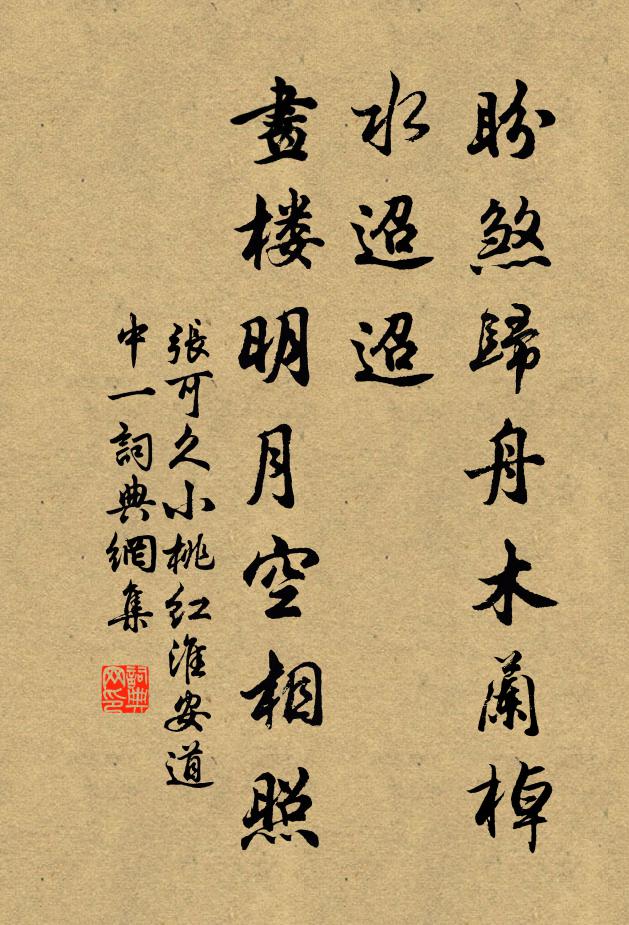 盼煞歸舟木蘭棹
水迢迢
畫楼明月空相照
張可久小桃红淮安道
中一詞典網集
詞典网印